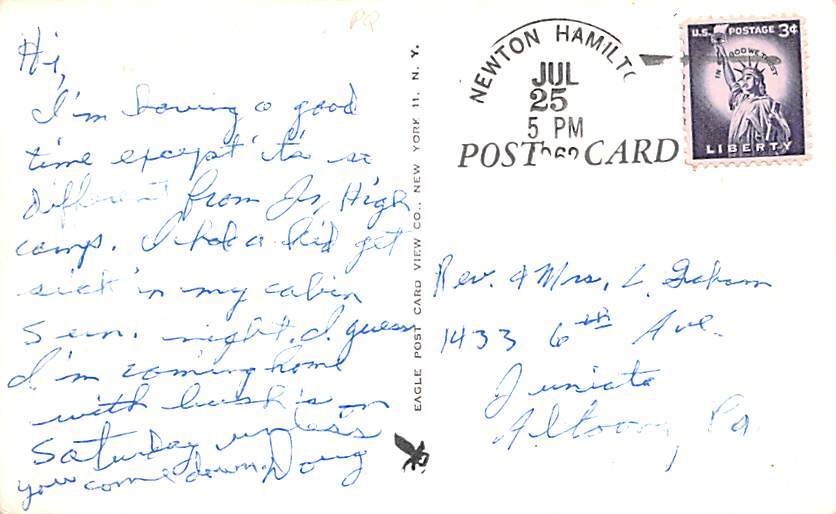 PQ
Hi,
I'm having a good
time except its so
different from Jr. High
camp. I had a kid get
sick in my cabin
Sun. night. I guess
I'm coming home
with bush's on
Saturday unless
you come down. Doug
EAGLE POST CARD VIEW CO., NEW YORK 11, N. Y.
NEWTON HAMILTO
JUL
25
5 PM
POST CARD
U.S. POSTAGE 3¢
IN GOD WE TRUST
LIBERTY
Rev. & Mrs. L. Graham
1433 6th Ave.
Juniata
Altoona, Pa.